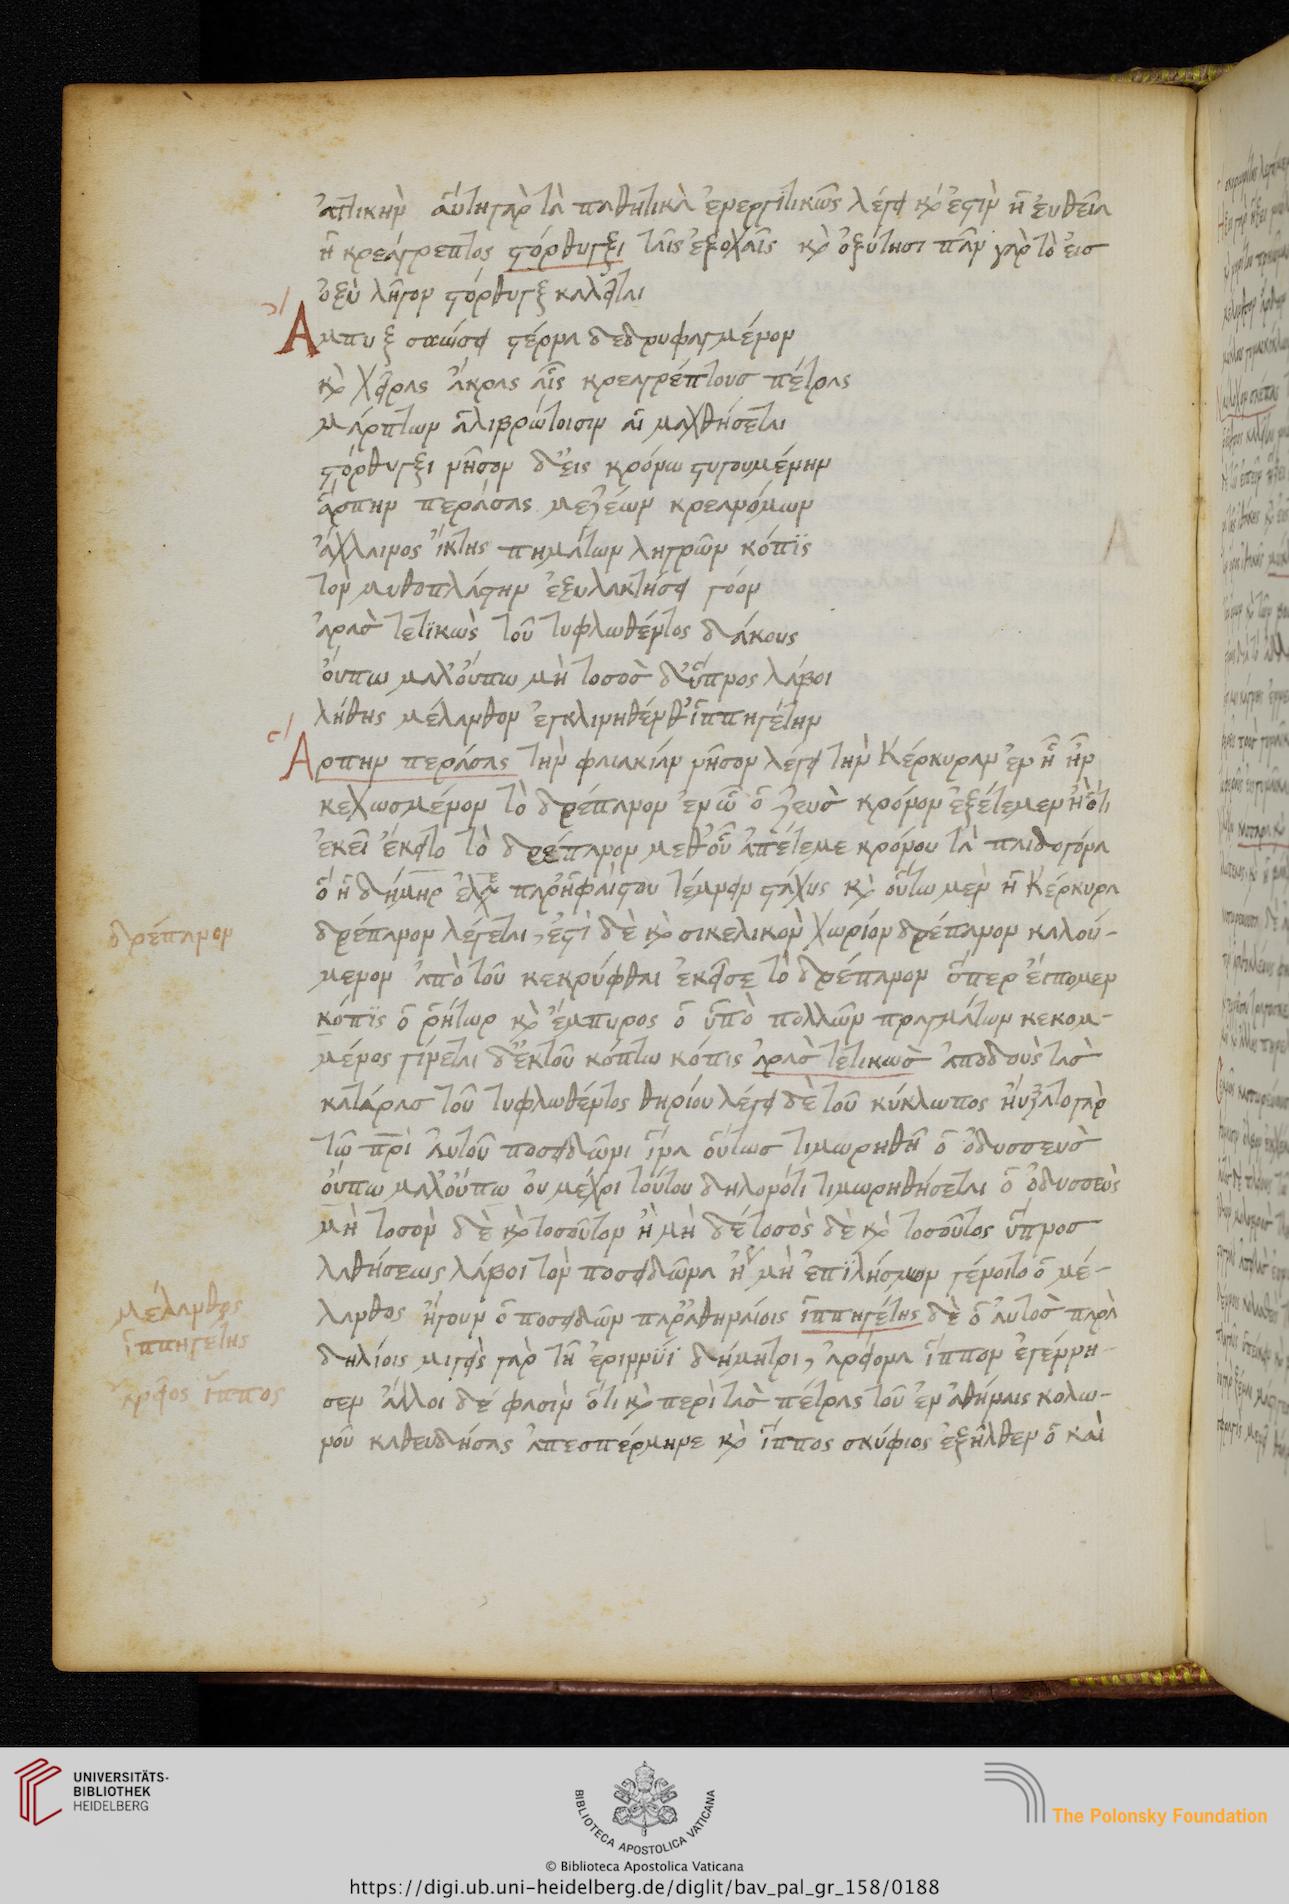 αἰτιατικήν αὕτη γὰρ τὰ παθητικὰ ἐνεργητικῶς λέγει καὶ ἐστὶν ἡ εὐθεῖα
ἡ κρεάγρεπτος στόρθυγξι ταῖς ἐξοχαῖς καὶ ὀξύτησι πᾶν γὰρ τὸ εἰσ
ὀξὺ λῆγον στόρθυγξ καλεῖται
Αμπυξ σαώσει στέρνα δεδρυφαγμένον
καὶ χεῖρας ἄκρας αἷς κρεαγρέπτους πέτρας
μάρπτων ἁλιβρώτοισιν αἱμαχθήσεται
στόρθυγξι νῆσον δ' εἰς κρόνω στυγουμένην
ἅρπην περάσας μεζέων κρεανόμων
ἄχλαινος ἵκτης πημάτων λυγρῶν κόπϊς
τὸν μυθοπλάστην ἐξυλακτήσει γόον
ἀρὰσ τετϊκὼς τοῦ τυφλωθέντος δάκους
οὔπω μάλ' οὔπω μὴ τοσόσ δ' ὕπνος λάβοι
λήθης μέλανθον ἐγκλινηθένθ' ἱππηγέτην
Αρπην περάσας τὴν φαιακίαν νῆσον λέγει τὴν Κέρκυραν ἐν ἧ ἦν
κεχωσμένον τὸ δρέπανον ἐν ὧ ὁ ζεὺσ κρόνον ἐξέτεμεν ἢ ὅτι
ἐκεῖ ἔκειτο τὸ δρέπανον μεθ' οὗ ἀπέτεμε κρόνου τὰ παιδογόνα
ὁ ἡ δήμηρ ἔλαβε παρ' ἡφαίστου τέμνειν στάχυς καὶ οὕτω μὲν ἡ Κέρκυρα
δρέπανον λέγεται, ἐστὶ δὲ καὶ σικελικὸν χωρίον δρέπανον καλού-
μενον ἀπὸ τοῦ κεκρύφθαι ἐκεῖσε τὸ δρέπανον ὅπερ εἴπομεν
κόπϊς ὁ ῥήτωρ καὶ ἔμπυρος ὁ ὑπὸ πολλῶν πραγμάτων κεκομ-
μένος γίνεται δ' ἐκ τοῦ κόπτω κόπις ἀρὰσ τετικὼσ ἀποδοὺς τὰσ
κατάρασ τοῦ τυφλωθέντος θηρίου λέγει δὲ τοῦ κύκλωπος ηὔξατο γὰρ
τῶ πρὶ αὐτοῦ ποσειδῶνι ἵνα οὕτωσ τιμωρηθῆ ὁ ὀδυσσεὺσ
οὔπω μάλ' οὔπω οὐ μέχρι τούτου δηλονότι τιμωρηθήσεται ὁ ὀδυσσεὺς
μὴ τοσον δὲ καὶ τοσοῦτον ἢ μὴ δὲ τοσος δὲ καὶ τοσοῦτος ὕπνοσ
λαθήσεως λάβοι τὸν ποσειδῶνα ἢ μὴ ἐπϊλήσμων γένοιτο ὁ μέ-
λανθος ἤγουν ὁ ποσειδῶν παρ' ἀθηναίοις ἱππηγέτης δὲ ὁ αὐτοσ παρὰ
δηλίοις μιγεὶς γὰρ τῆ ἐριννύϊ δήμητρι, ἀρείονα ἵππον ἐγέννη-
σεν ἄλλοι δέ φασιν ὅτι καὶ περὶ τὰσ πέτρας τοῦ ἐν ἀθήναις κολω-
νοῦ καθευδήσας ἀπεσπέρμηνε καὶ ἵππος σκύφιος ἐξῆλθεν ὁ καὶ
δρέπανον
μέλανθος
ἱππηγέτης
ἀρεῖος ἵππος
UNIVERSITÄTS-
BIBLIOTHEK
HEIDELBERG
BIBLIOTECA APOSTOLICA VATICANA
The Polonsky Foundation
© Biblioteca Apostolica Vaticana
https://digi.ub.uni-heidelberg.de/diglit/bav_pal_gr_158/0188